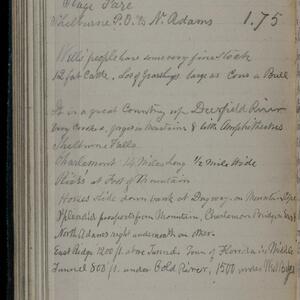 Stage Fare
Shelburne P.O. to N. Adams 1.75
Wells people have some very fine Stock
fat Cattle. Lot of Grasslings large as Cows & Bull
It is a great Country up Deerfield River
Very Crooked, gorges in Mountains & little Amphitheatres
Shelburne Falls
Charlemont 14 Miles long 1/2 Miles Wide
Rice's at Foot of Mountain
Horses Slide down bank at on Mountain
Splendid prospects from Mountain, Charlemont on
North Adams right underneath on other.
East Ridge 1200 ft. above Tunnel Town of Florida in Middle
Tunnel 803 ft. under Cold River, 1500 under West